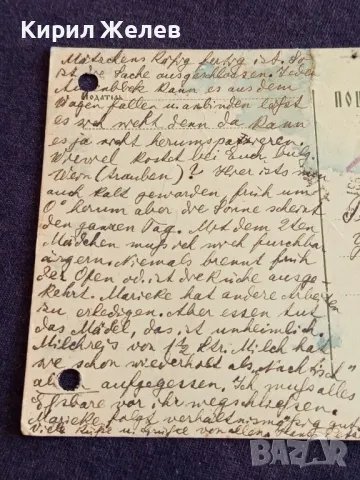 Кирил Желев
Mätschens Käfig fertig ist. So
ist die Sache ausgeschlossen. Jeden
Augenblick kann es aus dem
Податель
Wagen fallen u. anbinden läßt
es sich nicht denn da kann
es ja nicht herumspazieren.
Wieviel kostet bei Euch bulg.
Wein (Trauben)? Hier ist's nun
auch kalt geworden, früh um
0° herum aber die Sonne scheint
den ganzen Tag. Mit dem 2ten
Mädchen muß ich mich furchtbar
ärgern. Niemals brennt früh
der Ofen od. ist die Küche ausge-
kehrt. Marieke hat andere Arbeiten
zu erledigen. Aber essen tut
das Mädel, das ist unheimlich.
Milchreis von 1½ Ltr. Milch hat
sie schon wiederholt als "Nachtisch"
aufgegessen. Ich muß alles
Eßbare vor ihr wegschließen.
Marieke folgt verhältnismäßig gut.
Viele Küsse u. Grüße von allen
ПОЩ
bazar.bg